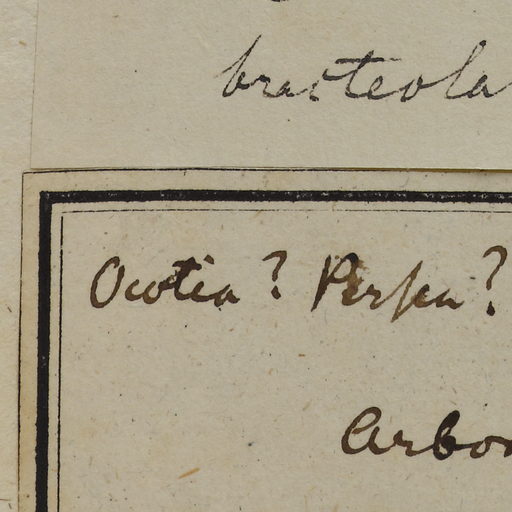 bracteola
Ocotia? Persea?
Arbor